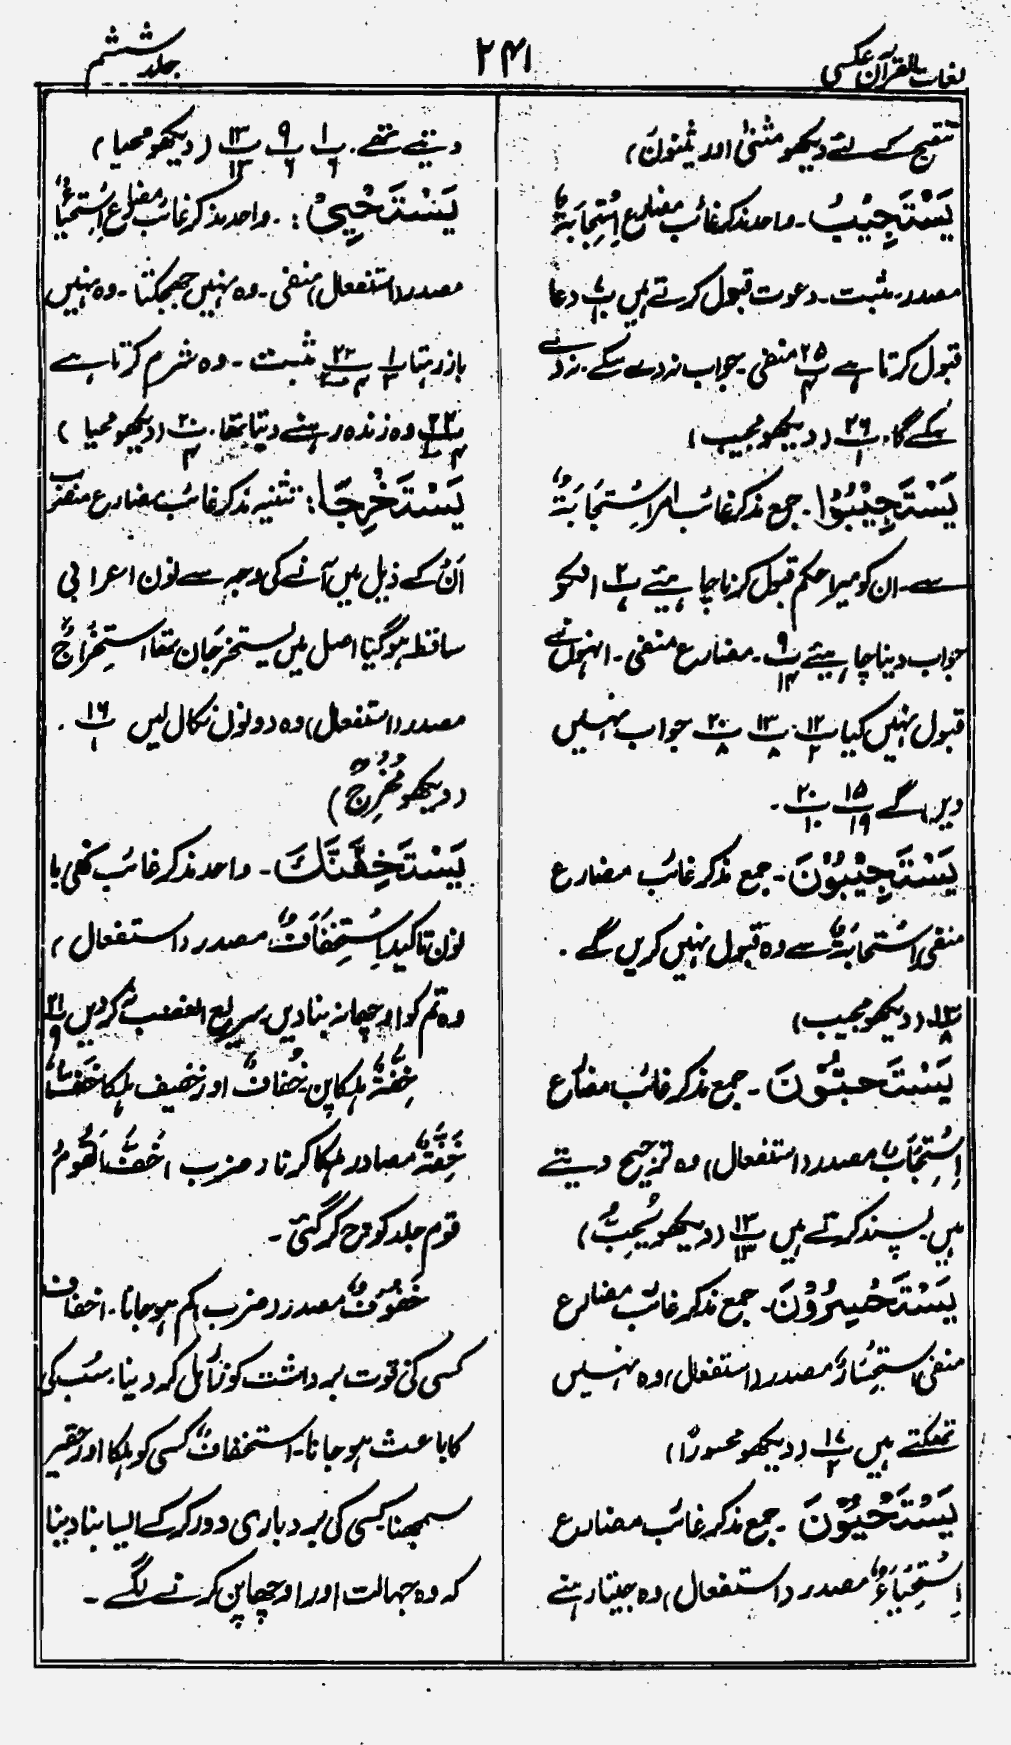 لغات القرآن عکسی
۲۴۱
جلد ششم
تنقیح کے لئے دیکھو مثنیٰ اور یثنون)
یَسْتَجِیْبُ ۔ واحد مذکر غائب مضارع اِسْتِجَابَۃٌ
مصدر ۔ مثبت ۔ دعوت قبول کرتے ہیں دعا
قبول کرتا ہے ۲۵/۴ منفی ۔ جواب نہ دے سکے ۔ نہ دے
سکے گا ۔ ۲۶/۱ (دیکھو مجیب)
یَسْتَجِیْبُوْا ۔ جمع مذکر غائب امر اِسْتِجَابَۃٌ
سے ۔ ان کو میرا حکم قبول کرنا چاہیئے ان کو
جواب دینا چاہیئے ۹/۱۴ ۔ مضارع منفی ۔ انہوں نے
قبول نہیں کیا ۱۲/۲ ۱۳/۸ ۲۰/۸ جواب نہیں
دیں گے ۱۵/۱۹ ۲۰/۱۰ ۔
یَسْتَجِیْبُوْنَ ۔ جمع مذکر غائب مضارع
منفی اِسْتِجَابَۃٌ سے وہ قبول نہیں کریں گے ۔
(دیکھو مجیب)
یَسْتَحِبُّوْنَ ۔ جمع مذکر غائب مضارع
مصدر (استفعال) وہ ترجیح دیتے
ہیں پسند کرتے ہیں ۱۳/۱۳ (دیکھو یُحِبُّ)
یَسْتَحْسِرُوْنَ ۔ جمع مذکر غائب مضارع
منفی اِسْتِحْسَارٌ مصدر (استفعال) وہ نہیں
تھکتے ہیں ۱۷/۲ (دیکھو محسورًا)
یَسْتَحْیُوْنَ ۔ جمع مذکر غائب مضارع
اِسْتِحْیَاءٌ مصدر (استفعال) وہ جیتا رہنے
دیتے تھے ۔ ۱/۶ ۹/۶ ۱۳/۱۳ (دیکھو محیا)
یَسْتَحْیِیْ : ۔ واحد مذکر غائب مضارع اِسْتِحْیَاءٌ
مصدر (استفعال) منفی ۔ وہ نہیں جھجکتا ۔ وہ نہیں
باز رہتا ۱/۳ ۲۲/۴ مثبت ۔ وہ شرم کرتا ہے
۲۲/۴ وہ زندہ رہنے دیتا تھا ۔ ۲۰/۴ (دیکھو محیا)
یَسْتَخْرِجَا : تثنیہ مذکر غائب مضارع منصوب
اَنْ کے ذیل میں آنے کی وجہ سے نون اعرابی
ساقط ہو گیا اصل میں یستخرجان تھا استِخْرَاجٌ
مصدر (استفعال) وہ دونوں نکال لیں ۱۶/۱ ۔
(دیکھو مُخْرِجٌ)
یَسْتَخِفَّنَّکَ ۔ واحد مذکر غائب نہی با
نون تاکید اِسْتِخْفَافٌ مصدر (استفعال)
وہ تم کو اوچھا نہ بنا دیں سریع الغضب نہ کر دیں ۲۱/۹
خِفَّۃٌ ہلکا پن خُفَافٌ اور خفیف ہلکا
خِفَّۃٌ مصادر ہلکا کرنا (ضرب)
قوم جلد کوچ کر گئی ۔
خُفُوْفٌ مصدر (ضرب) کم ہو جانا ۔ اخفاف
کسی کی قوت برداشت کو زائل کر دینا ۔ سُبکی
کا باعث ہو جانا ۔ استخفافٌ کسی کو ہلکا اور حقیر
سمجھنا کسی کی بردباری دور کر کے ایسا بنا دینا
کہ وہ جہالت اور اوچھا پن کرنے لگے ۔